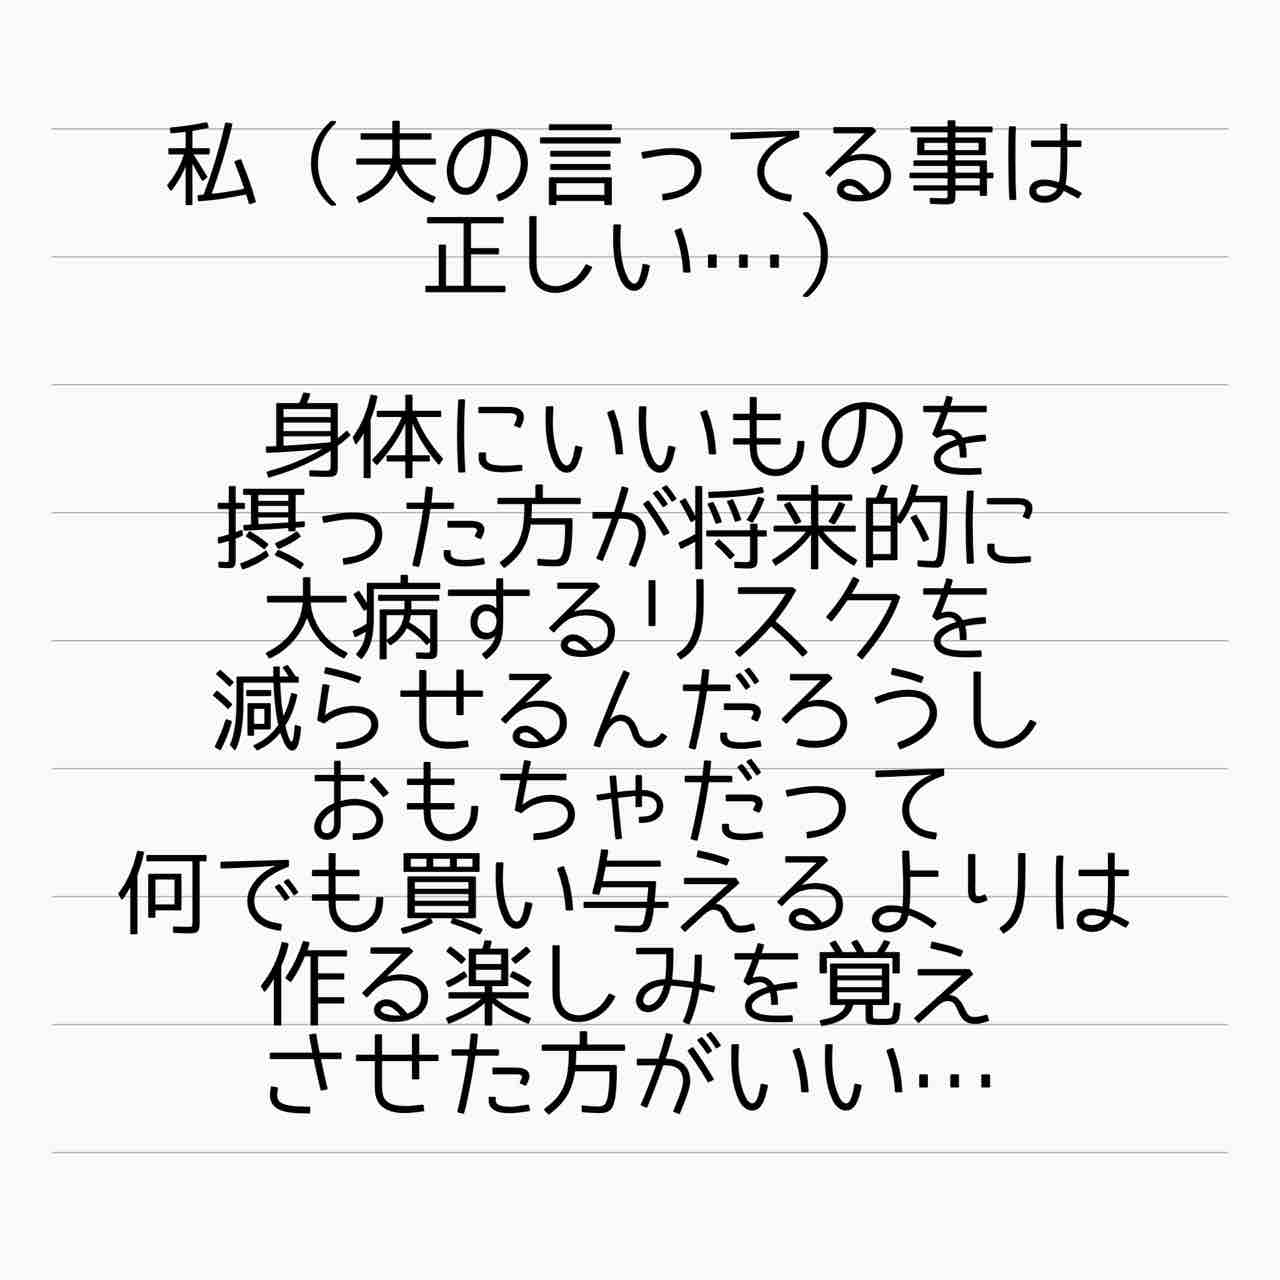 私（夫の言ってる事は
正しい…）
身体にいいものを
摂った方が将来的に
大病するリスクを
減らせるんだろうし
おもちゃだって
何でも買い与えるよりは
作る楽しみを覚え
させた方がいい…